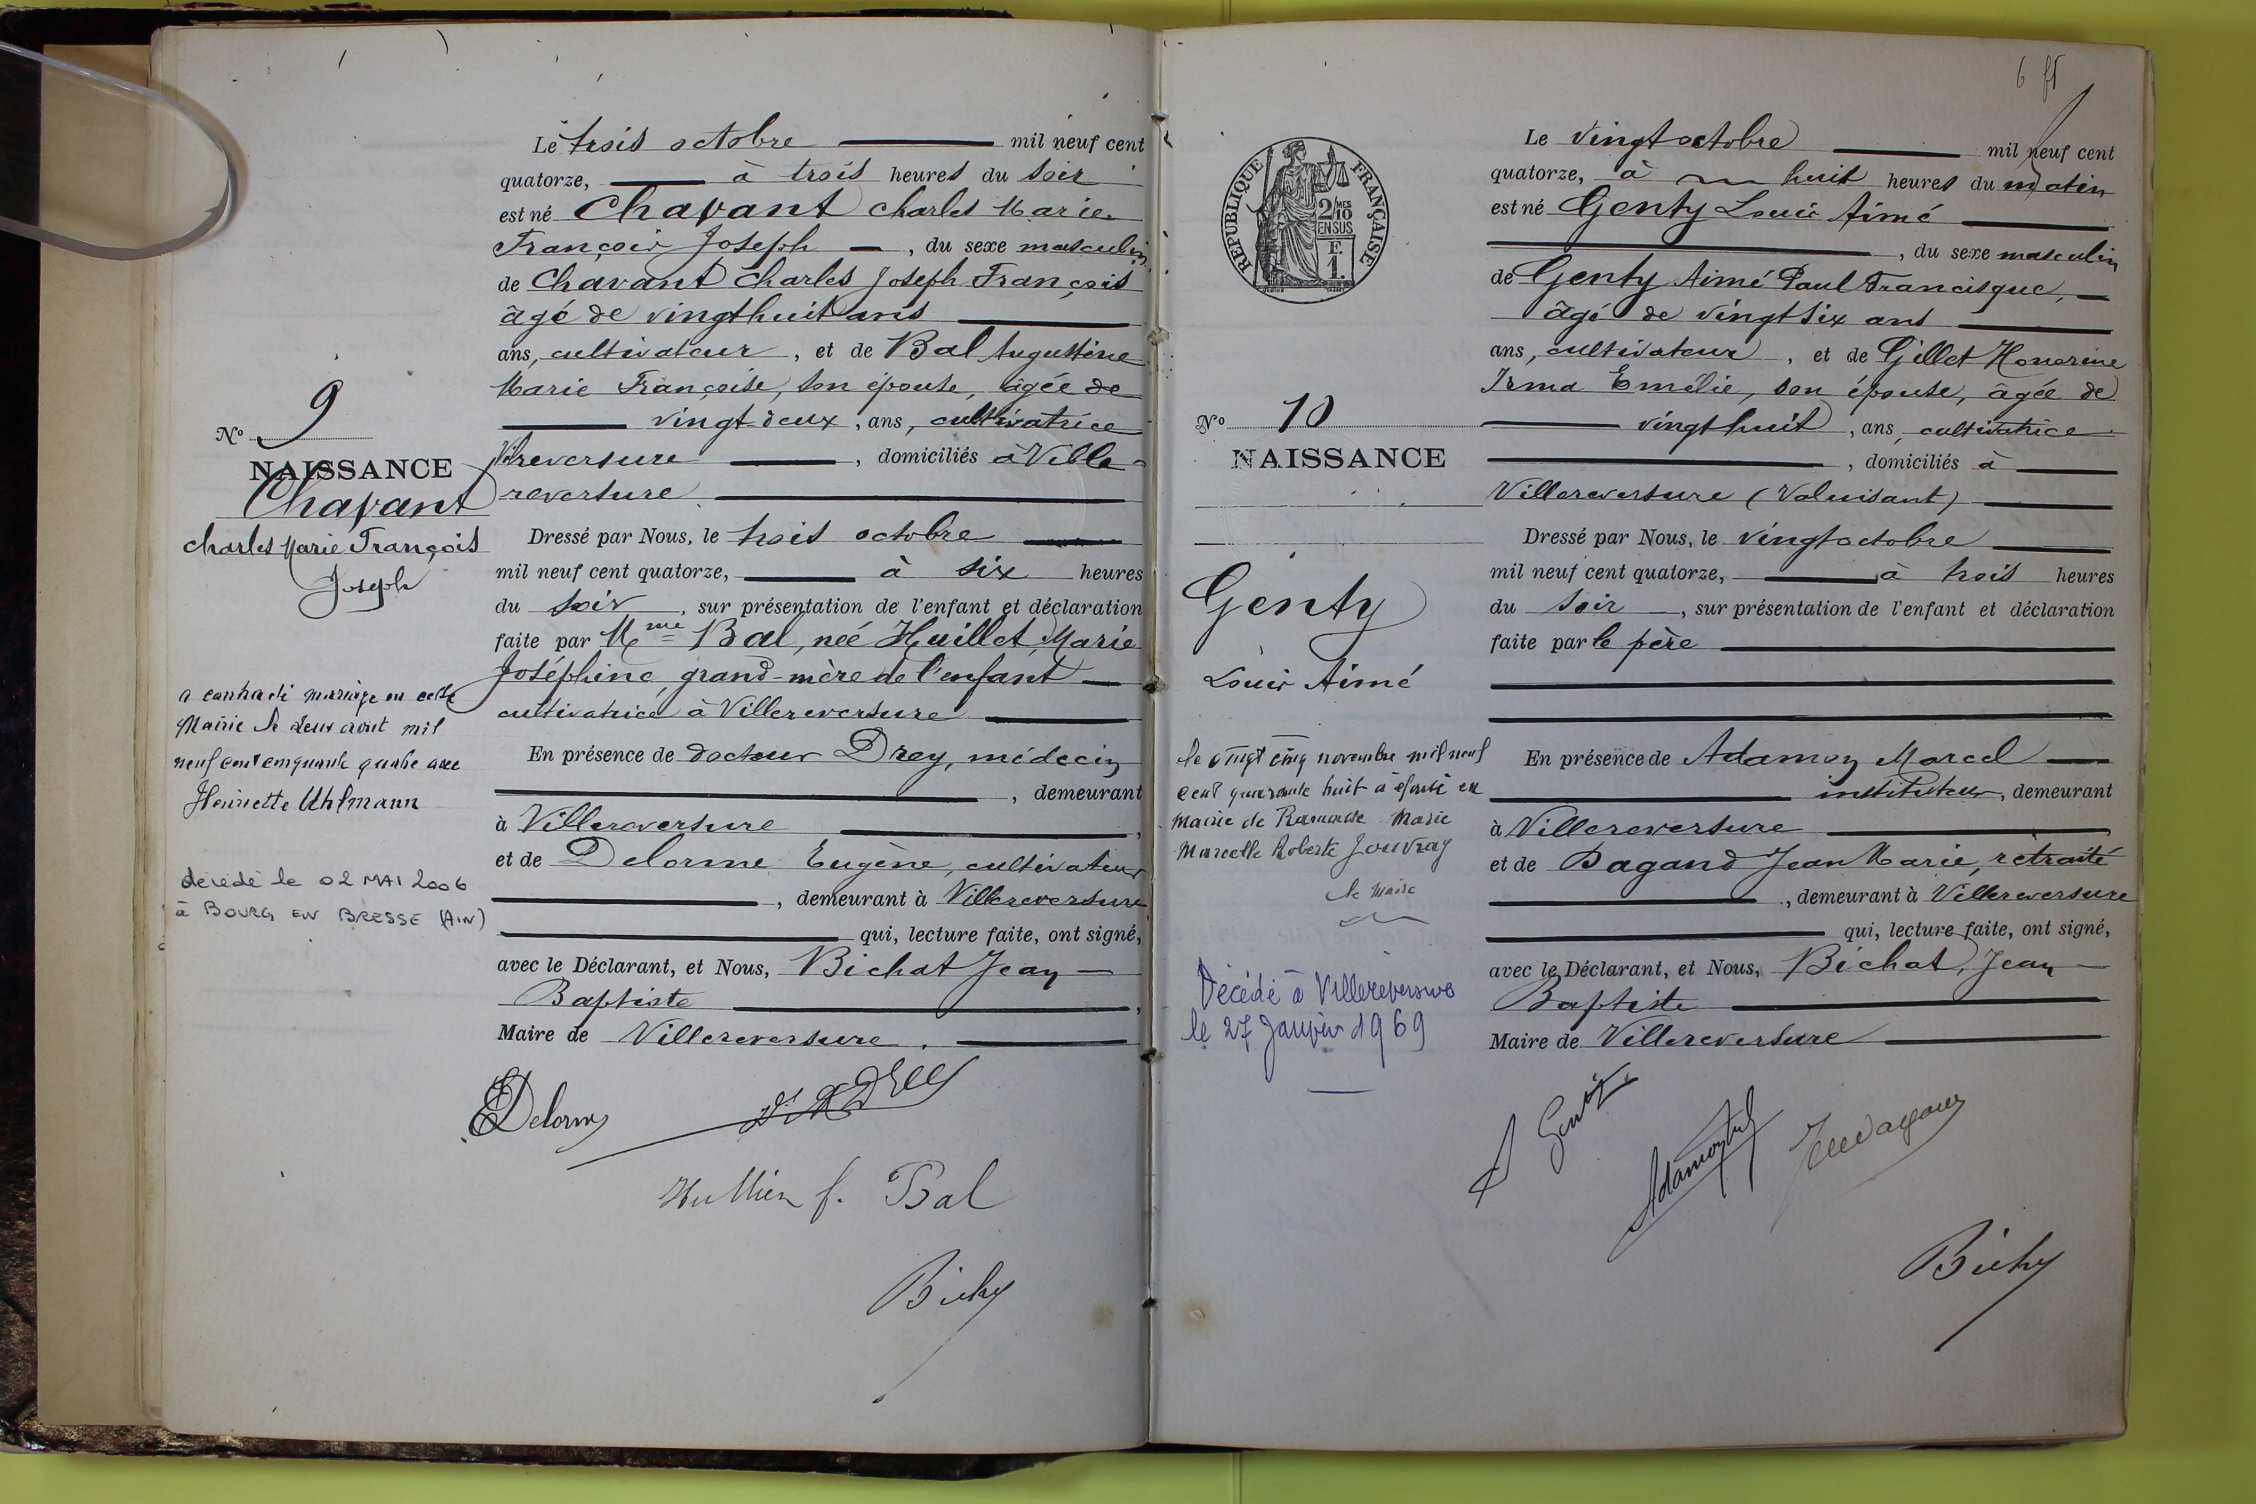 N° 9
NAISSANCE
Chavant
Charles Marie François
Joseph
a contracté mariage en cette
Mairie le deux août mil
neuf cent cinquante quatre avec
Henriette Uhlmann
décédé le 02 MAI 2006
à BOURG EN BRESSE (AIN)
Le trois octobre mil neuf cent
quatorze, à trois heures du soir
est né Chavant Charles Marie
François Joseph, du sexe masculin
de Chavant Charles Joseph François
âgé de vingt huit ans
ans, cultivateur, et de Bal Augustine
Marie Françoise, son épouse, âgée de
vingt deux, ans, cultivatrice
Villereversure, domiciliés à Ville-
reversure
Dressé par Nous, le trois octobre
mil neuf cent quatorze, à six heures
du soir, sur présentation de l'enfant et déclaration
faite par Mme Bal, neé Huillet, Marie
Joséphine, grand-mère de l'enfant
cultivatrice à Villereversure
En présence de docteur Drey, médecin
, demeurant
à Villereversure,
et de Delorme Eugène, cultivateur
, demeurant à Villereversure
qui, lecture faite, ont signé,
avec le Déclarant, et Nous, Bichat Jean
Baptiste,
Maire de Villereversure.
EDelorme
f. Bal
6
REPUBLIQUE FRANÇAISE
2/10 MES
EN SUS
F.
1.
N° 10
NAISSANCE
Genty
Louis Aimé
le vingt cinq novembre mil neuf
cent quarante huit a épousé en
Mairie de Marie
Marcelle Roberte Jouvray
le Maire
Décédé à Villereversure
le 27 Janvier 1969
Le vingt octobre mil neuf cent
quatorze, à huit heures du matin
est né Genty Louis Aimé
, du sexe masculin
de Genty Aimé Paul Francisque,
âgé de vingt six ans
ans, cultivateur, et de Gillet Honorine
Irma Emélie, son épouse, âgée de
vingt huit, ans, cultivatrice
, domiciliés à
Villereversure (Valuisant)
Dressé par Nous, le vingt octobre
mil neuf cent quatorze, à trois heures
du soir, sur présentation de l'enfant et déclaration
faite par le père
En présence de Adamoz Marcel
instituteur, demeurant
à Villereversure
et de Dagand Jean Marie, retraité
, demeurant à Villereversure
qui, lecture faite, ont signé,
avec le Déclarant, et Nous, Bichat, Jean
Baptiste
Maire de Villereversure
A Genty